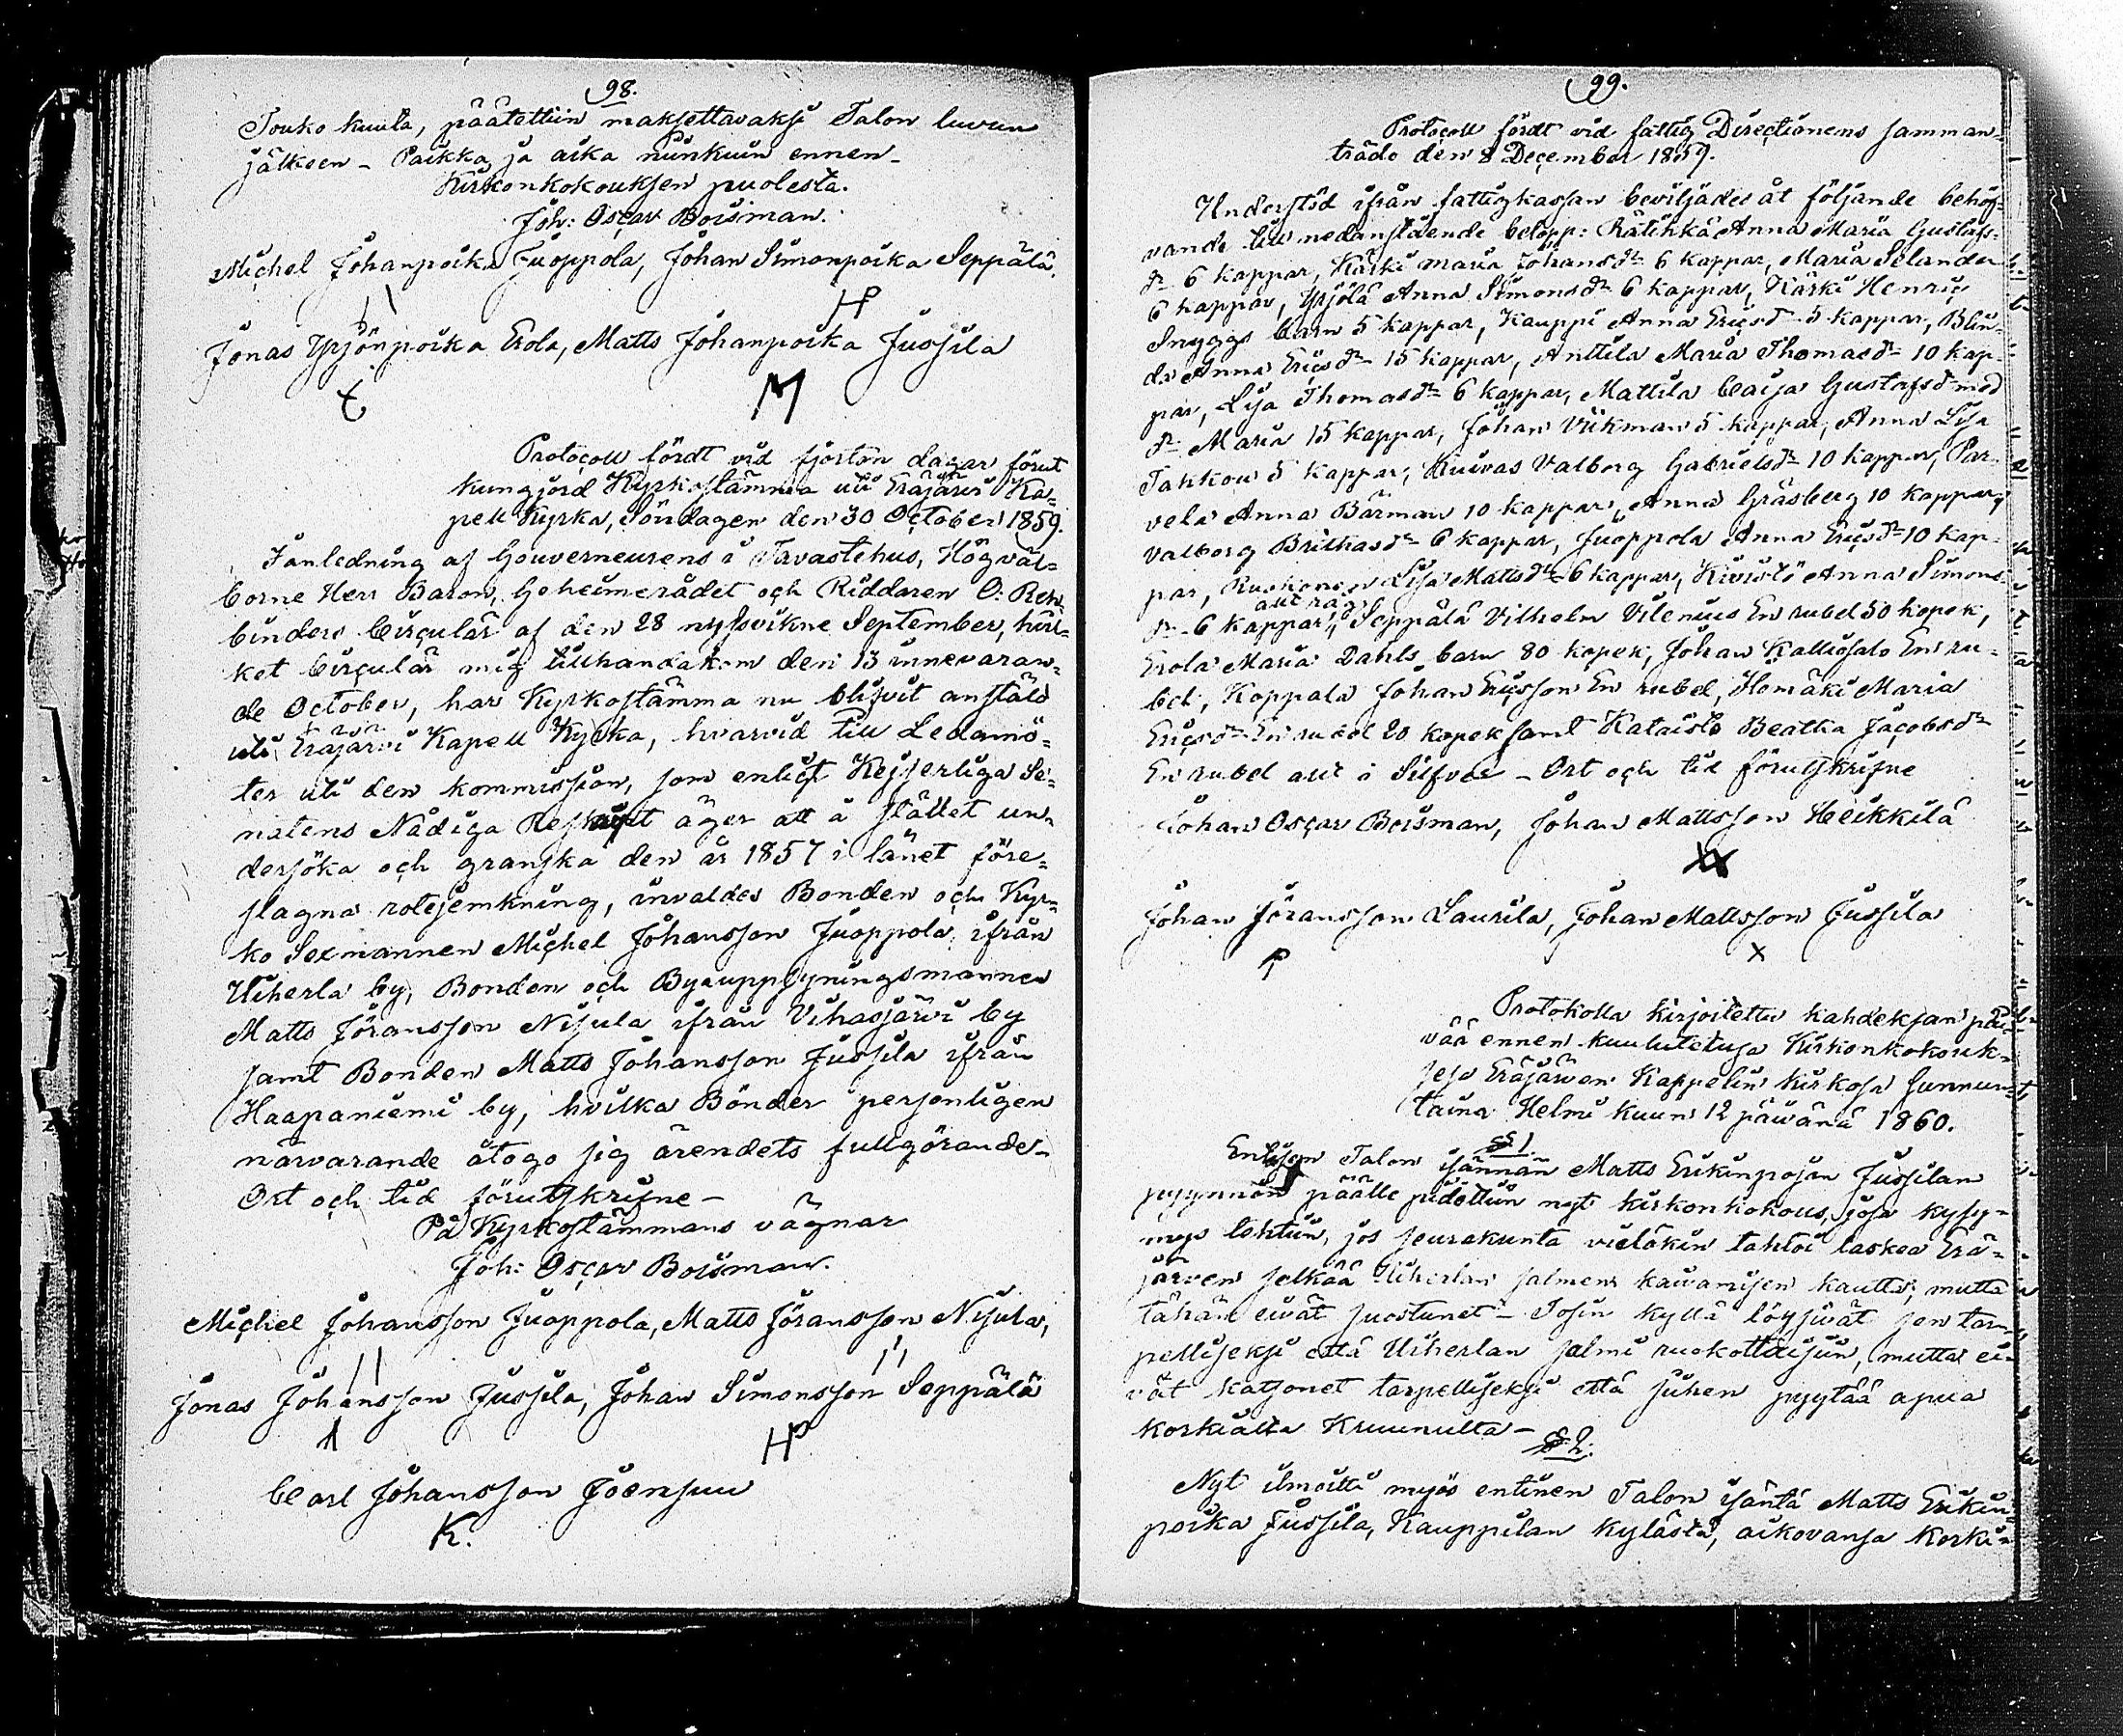 98.
Touko kuuta, päätettiin maksettavaksi Talon luvun
jälkeen - Paikka ja aika niinkuin ennen -
Kirkonkokouksen puolesta.
Joh: Oscar Boisman.
Michel Johanpoika Juoppola, Johan Simonpoika Seppälä,
Jonas Yrjönpoika Erola, Matts Johanpoika Jussila
M
Protocoll fördt vid fjorton dagar förut
kungjord Kyrkostämma uti Eräjärvi Ka-
pell Kyrka, Söndagen den 30 October 1859.
I anledning af Gouverneurens i Tavastehus, Högväl-
borne Herr Baron, Geheimerådet och Riddaren O: Reh-
binders Circulär af den 28 nyssvikne September, hvil-
ket Circulär mig tillhandakom den 13 innevaran-
de October, har Kyrkostämma nu blifvit anstäld
uti Eräjärvi Kapell Kyrka, hvarvid till Ledamö-
ter uti den kommission, som enligt Kejserliga Se-
natens Nådiga Reskript äger att å stället un-
dersöka och granska den år 1857 i länet före-
slagna rotejemkning, invaldes Bonden och Kyr-
ko Sexmannen Michel Johansson Juoppola ifrån
Uiherla by, Bonden och Byauppsyningsmannen
Matts Jöransson Nisula ifrån Vihasjärvi by
samt Bonden Matts Johansson Jussila ifrån
Haapaniemi by, hvilka Bönder personligen
närvarande åtogo sig ärendets fullgörande -
Ort och tid förutskrifne -
På Kyrkostämmans vägnar
Joh: Oscar Boisman.
Michel Johansson Juoppola, Matts Jöransson Nisula,
Jonas Johansson Jussila, Johan Simonsson Seppälä
Carl Johansson Joensuu
K.
99.
Protocoll fördt vid fattig Directionens samman-
träde den 8 December 1859.
Understöd ifrån fattigkassan beviljades åt följande behöf-
vande till nedanstående belopp: Rätikkä Anna Maria Gustafs-
dr 6 kappar, Kärki Maria Johansdr 6 kappar, Maria Selander
6 kappar, Yrjölä Anna Simonsdr 6 kappar, Kärki Henric
Snyggs barn 5 kappar, Kauppi Anna Ericsdr 5 kappar, Blin-
da Anna Ericsdr 15 kappar, Anttila Maria Thomasdr 10 kap-
par, Lisa Thomasdr 6 kappar, Mattila Caisa Gustafsdr med
dr Maria 15 kappar, Johan Vikman 5 kappar, Anna Lisa
Takkou 5 kappar, Kuivas Valborg Gabrielsdr 10 kappar, Par-
vela Anna Bärman 10 kappar, Anna Gräsberg 10 kappar,
Valborg Brithasdr 6 kappar, Juoppola Anna Ericsdr 10 kap-
par, Ruokonen Lisa Mattsdr 6 kappar, Kivistö Anna Simons-
allt råg
dr 6 kappar, Seppälä Vilhelm Vilenius En rubel 50 kopek,
Erola Maria Dahls barn 80 kopek, Johan Kalliosalo En ru-
bel, Koppala Johan Ericsson En rubel, Homäki Maria
Ericsdr En rubel 20 kopek samt Kataisto Beatha Jacobsdr
En rubel allt i Silfver - Ort och tid förutskrifne
Johan Oscar Boisman, Johan Mattsson Heikkilä
Johan Jöransson Laurila, Johan Mattsson Jussila
x
Protokolla kirjoitettu kahdeksan päi-
vää ennen kuulutetusa Kirkonkokouk-
sesa Eräjärven Kappelin kirkosa sunnun-
taina Helmi kuun 12 päivänä 1860.
§ 1.
Entisen Talon isännän Matts Erikinpojan Jussilan
pyynnön päälle pidettiin nyt kirkonkokous, josa kysy-
mys tehtiin, jos seurakunta vieläkin tahtoi laskea Erä-
järven selkää Uiherlan salmen kaivamisen kautta; mutta
tähän eivät suostunet - Tosin kyllä löysivät sen tar-
pelliseksi että Uiherlan salmi ruokottaisiin, mutta ei-
vät katsonet tarpelliseksi että siihen pyytää apua
korkialta Kruunulta -
§ 2.
Nyt ilmoitti myös entinen Talon isäntä Matts Erikin-
poika Jussila, Kauppilan kylästä, aikovansa Korki-